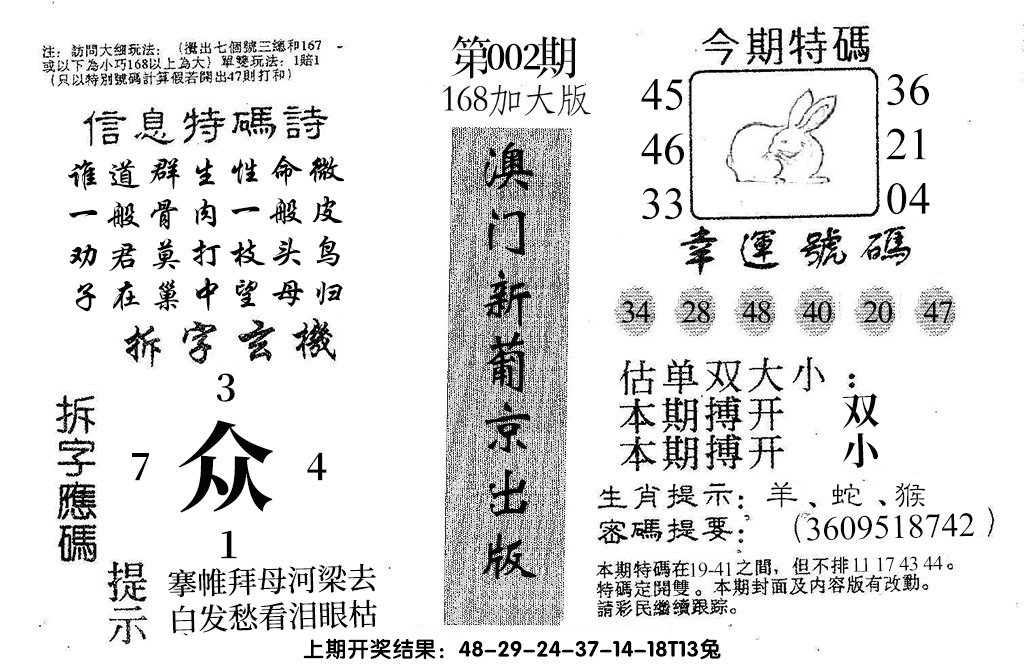 注：訪問大细玩法：（攪出七個號三總和167
或以下為小巧168以上為大）單雙玩法：1賠1
（只以特別號碼計算假若開出47則打和）
信息特碼詩
谁道群生性命微
一般骨肉一般皮
劝君莫打枝头鸟
子在巢中望母归
拆字玄機
拆字應碼
3
7 众 4
1
提示
搴帷拜母河梁去
白发愁看泪眼枯
第002期
168加大版
澳门新葡京出版
今期特碼
45 36
46 21
33 04
幸運號碼
34 28 48 40 20 47
估单双大小：
本期搏开 双
本期搏开 小
生肖提示：羊、蛇、猴
密碼提要：（3609518742）
本期特碼在19-41之間，但不排11 17 43 44。
特碼定開雙。本期封面及内容版有改動。
請彩民繼續跟踪。
上期开奖结果：48-29-24-37-14-18T13兔